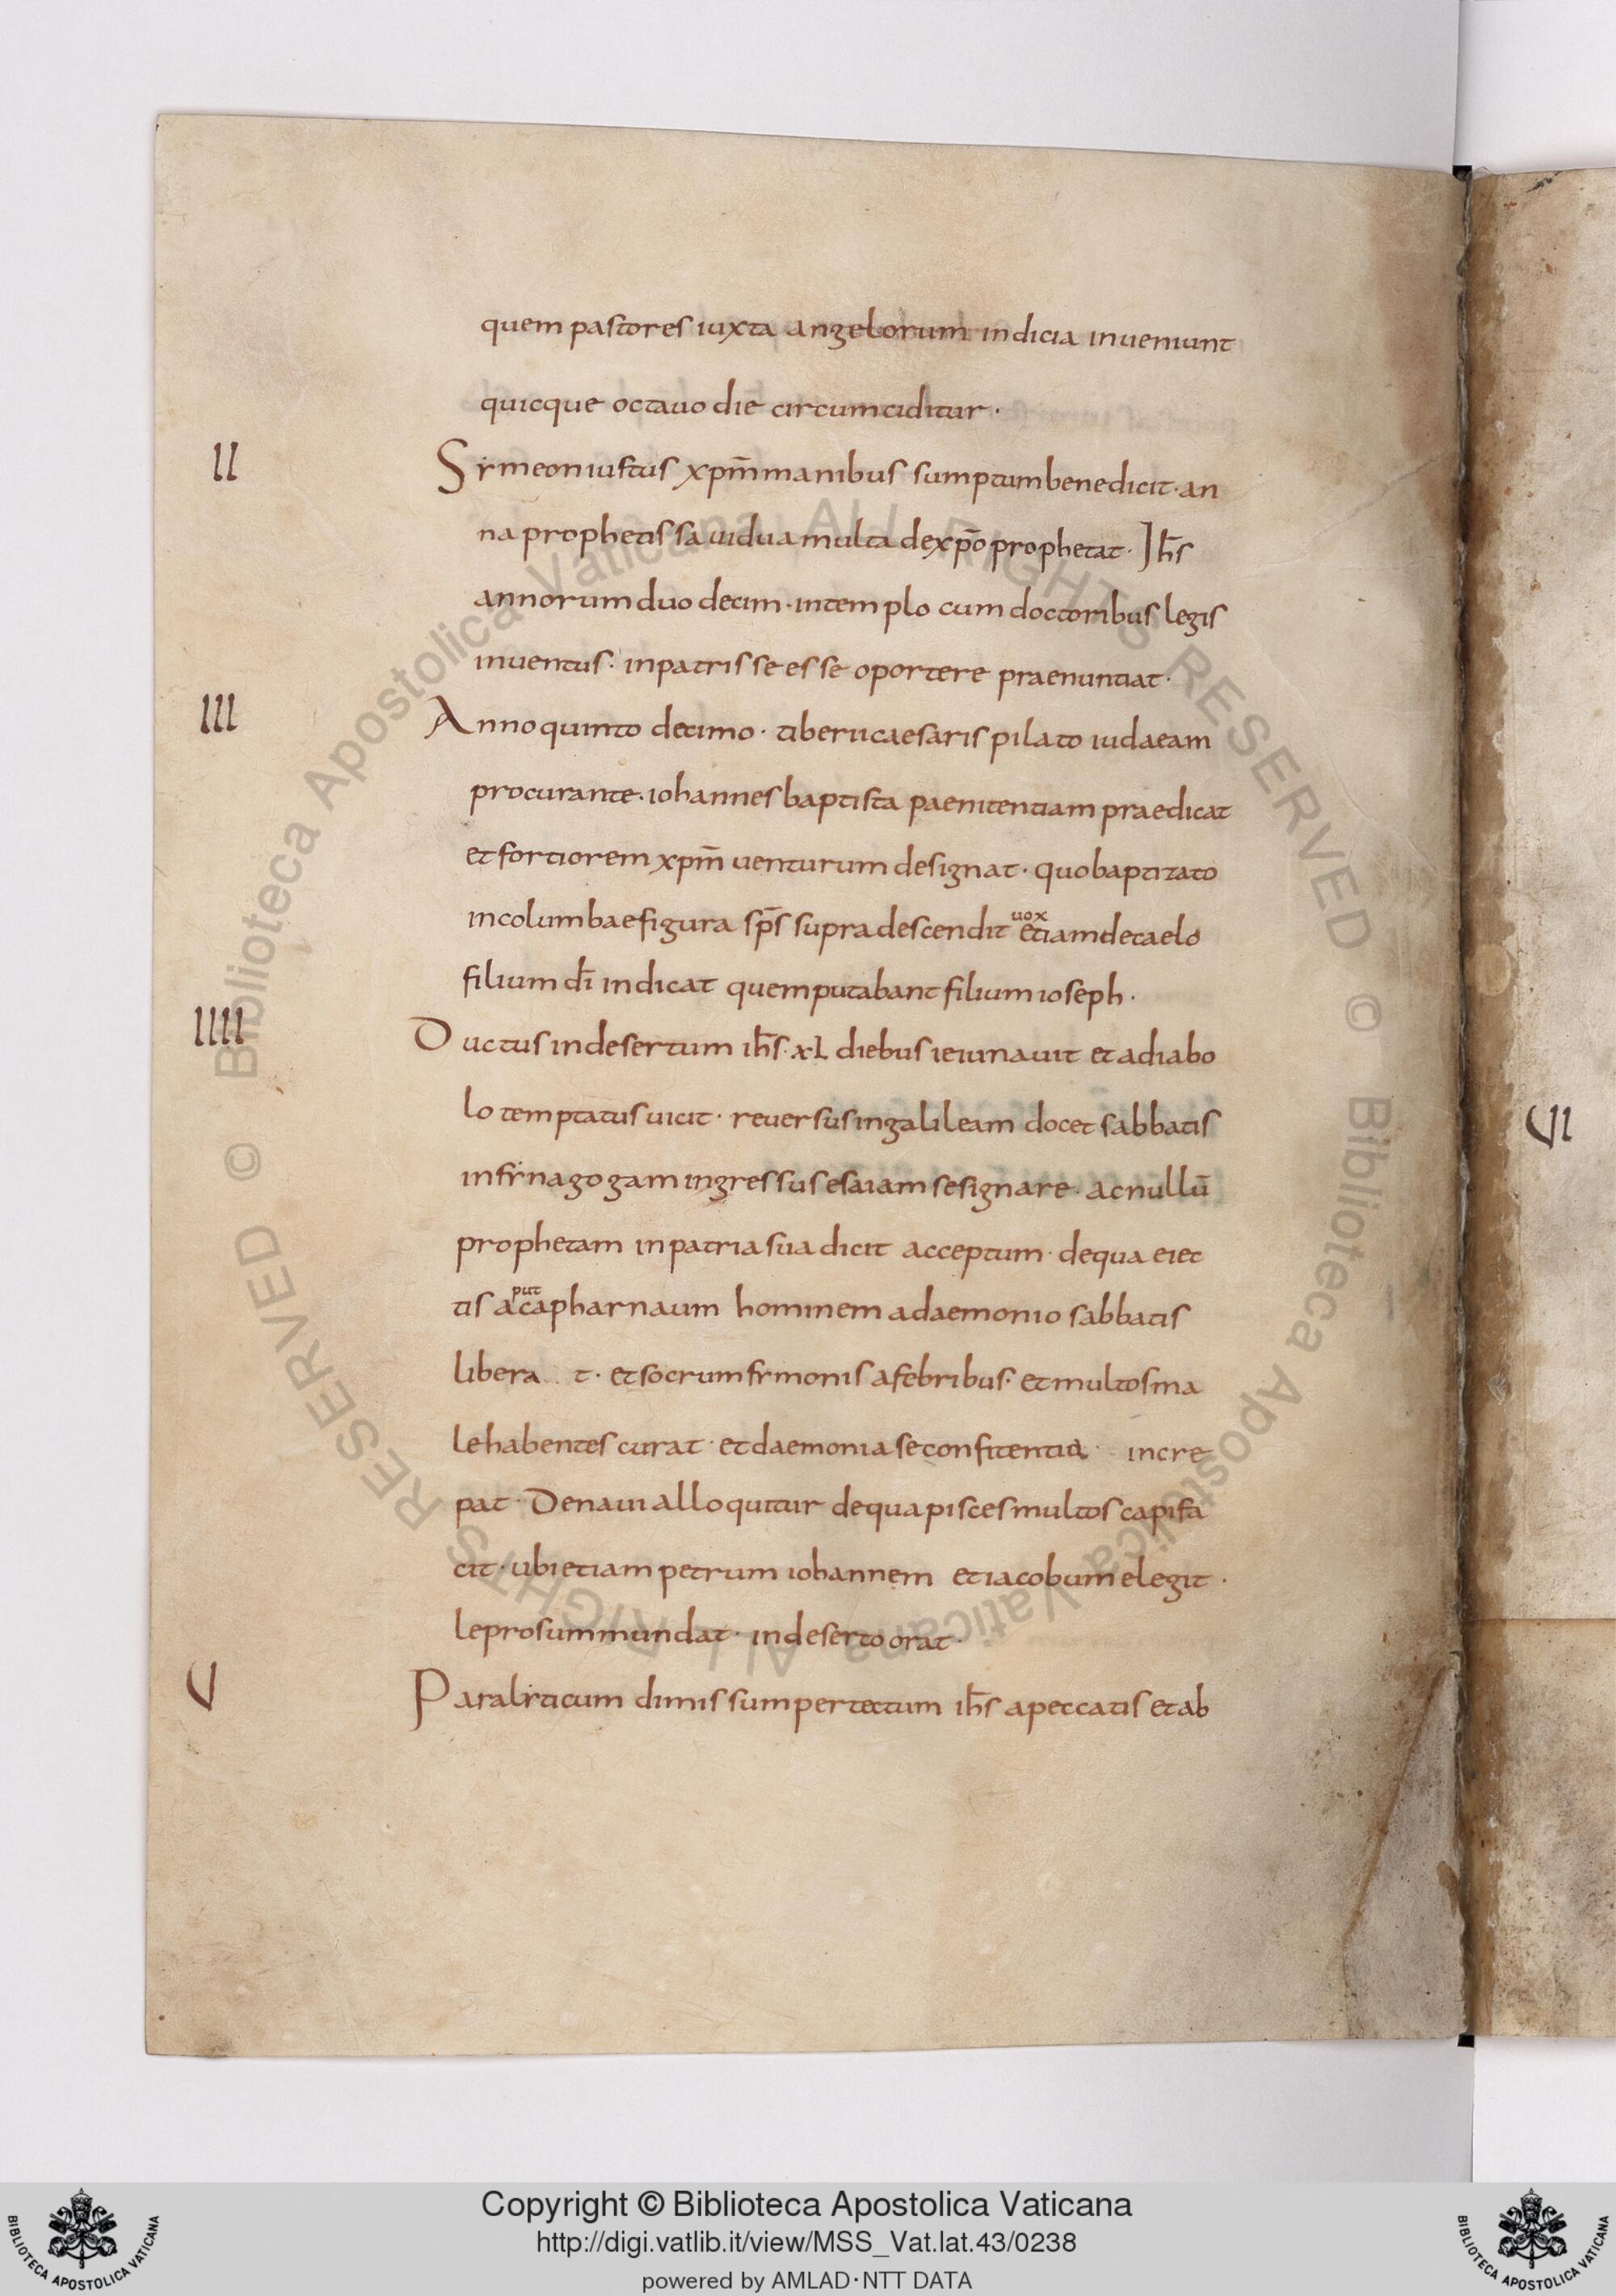 quem pastores iuxta angelorum indicia inueniunt
quicque octauo die circumciditur·
II
Symeon iustus xp̄m manibus sumptum benedicit· an
na prophetissa uidua multa de xp̄o prophetat· Ih̄s
annorum duodecim· in templo cum doctoribus legis
inuentus· in patris se esse oportere praenuntiat·
III
Anno quinto decimo· tiberii caesaris pilato iudaeam
procurante· iohannes baptista paenitentiam praedicat
et fortiorem xp̄m uenturum designat· quo baptizato
in columbae figura sp̄s supra descendit uox etiam de caelo
filium dī indicat quem putabant filium ioseph·
IIII
Ductus in desertum ih̄s· xl diebus ieiunauit et a diabo
lo temptatus uicit· reuersus in galileam docet sabbatis
in synagogam ingressus esaiam se signare· ac nullū
prophetam in patria sua dicit acceptum· de qua eiec
tis aput capharnaum hominem a daemonio sabbatis
libera t· et socrum symonis a febribus· et multos ma
le habentes curat· et daemonia se confitentia· incre
pat· De naui alloquitur de qua pisces multos capi fa
cit· ubi etiam petrum iohannem et iacobum elegit·
leprosum mundat· in deserto orat·
V
Paralyticum dimissum per tectum ih̄s a peccatis et ab
VI
Copyright © Biblioteca Apostolica Vaticana
http://digi.vatlib.it/view/MSS_Vat.lat.43/0238
powered by AMLAD·NTT DATA
BIBLIOTECA APOSTOLICA VATICANA
BIBLIOTECA APOSTOLICA VATICANA
© Biblioteca Apostolica Vaticana ALL RIGHTS RESERVED
© Biblioteca Apostolica Vaticana ALL RIGHTS RESERVED